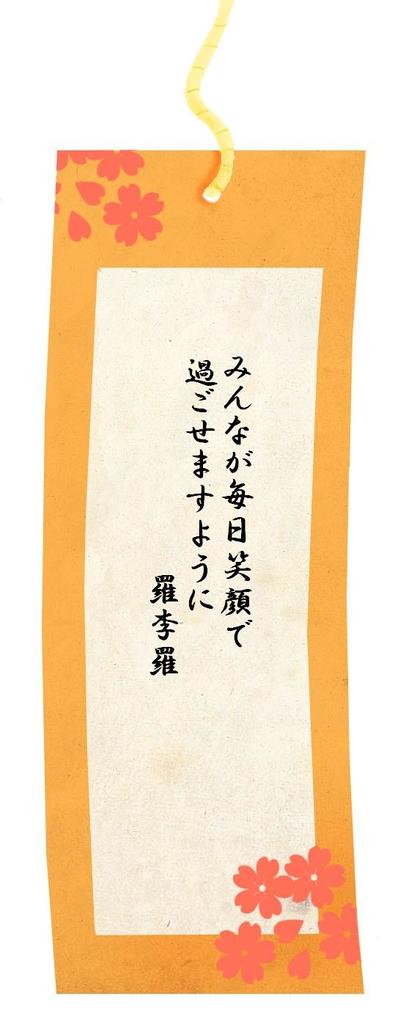 みんなが毎日笑顔で
過ごせますように
羅李羅